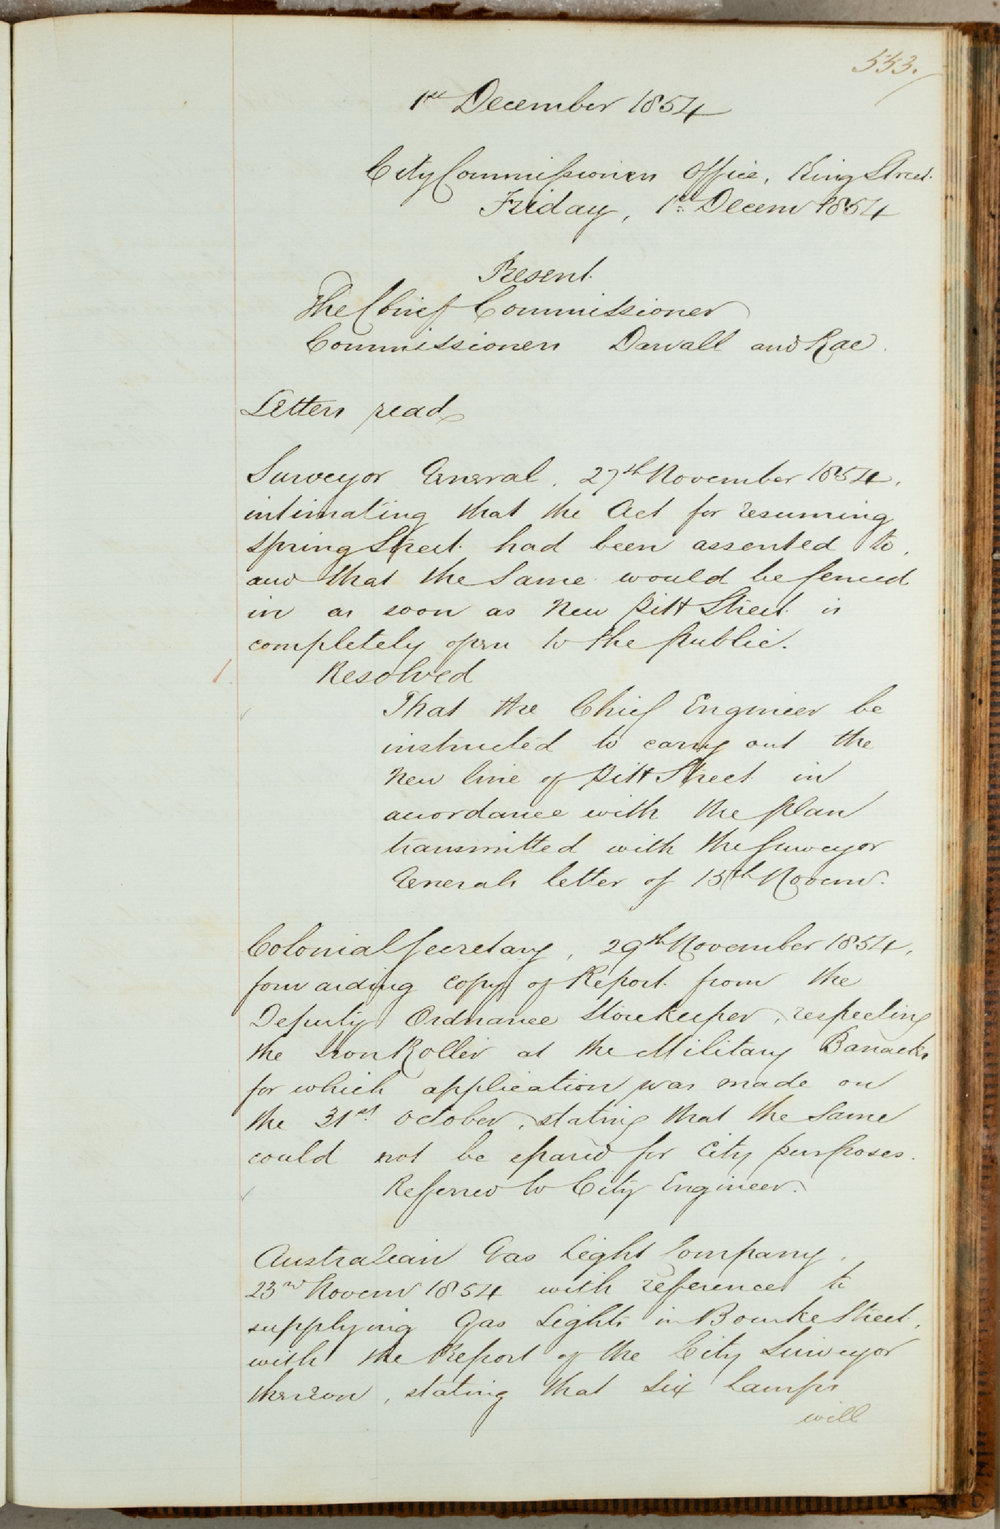 553.
1st December 1854
City Commissioners Office, King Street.
Friday, 1st Decem 1854
Present
The Chief Commissioner
Commissioners Darvall and Rae.
Letters read
Surveyor General, 27th November 1854,
intimating that the Act for resuming
Spring Street had been assented to,
and that the same would be fenced
in as soon as New Pitt Street is
completely open to the public.
1.
Resolved
That the Chief Engineer be
instructed to carry out the
New line of Pitt Street in
accordance with the plan
transmitted with the Surveyor
Generals letter of 15th Novem.
Colonial Secretary, 29th November 1854,
forwarding copy of Report from the
Deputy Ordnance Storekeeper, respecting
the Iron Roller at the Military Barracks
for which application was made on
the 31st October, stating that the same
could not be spared for City purposes.
Referred to City Engineer.
Australian Gas Light Company,
23rd Novem 1854 with reference to
supplying Gas Lights in Bourke Street,
with the Report of the City Surveyor
thereon, stating that six lamps
will